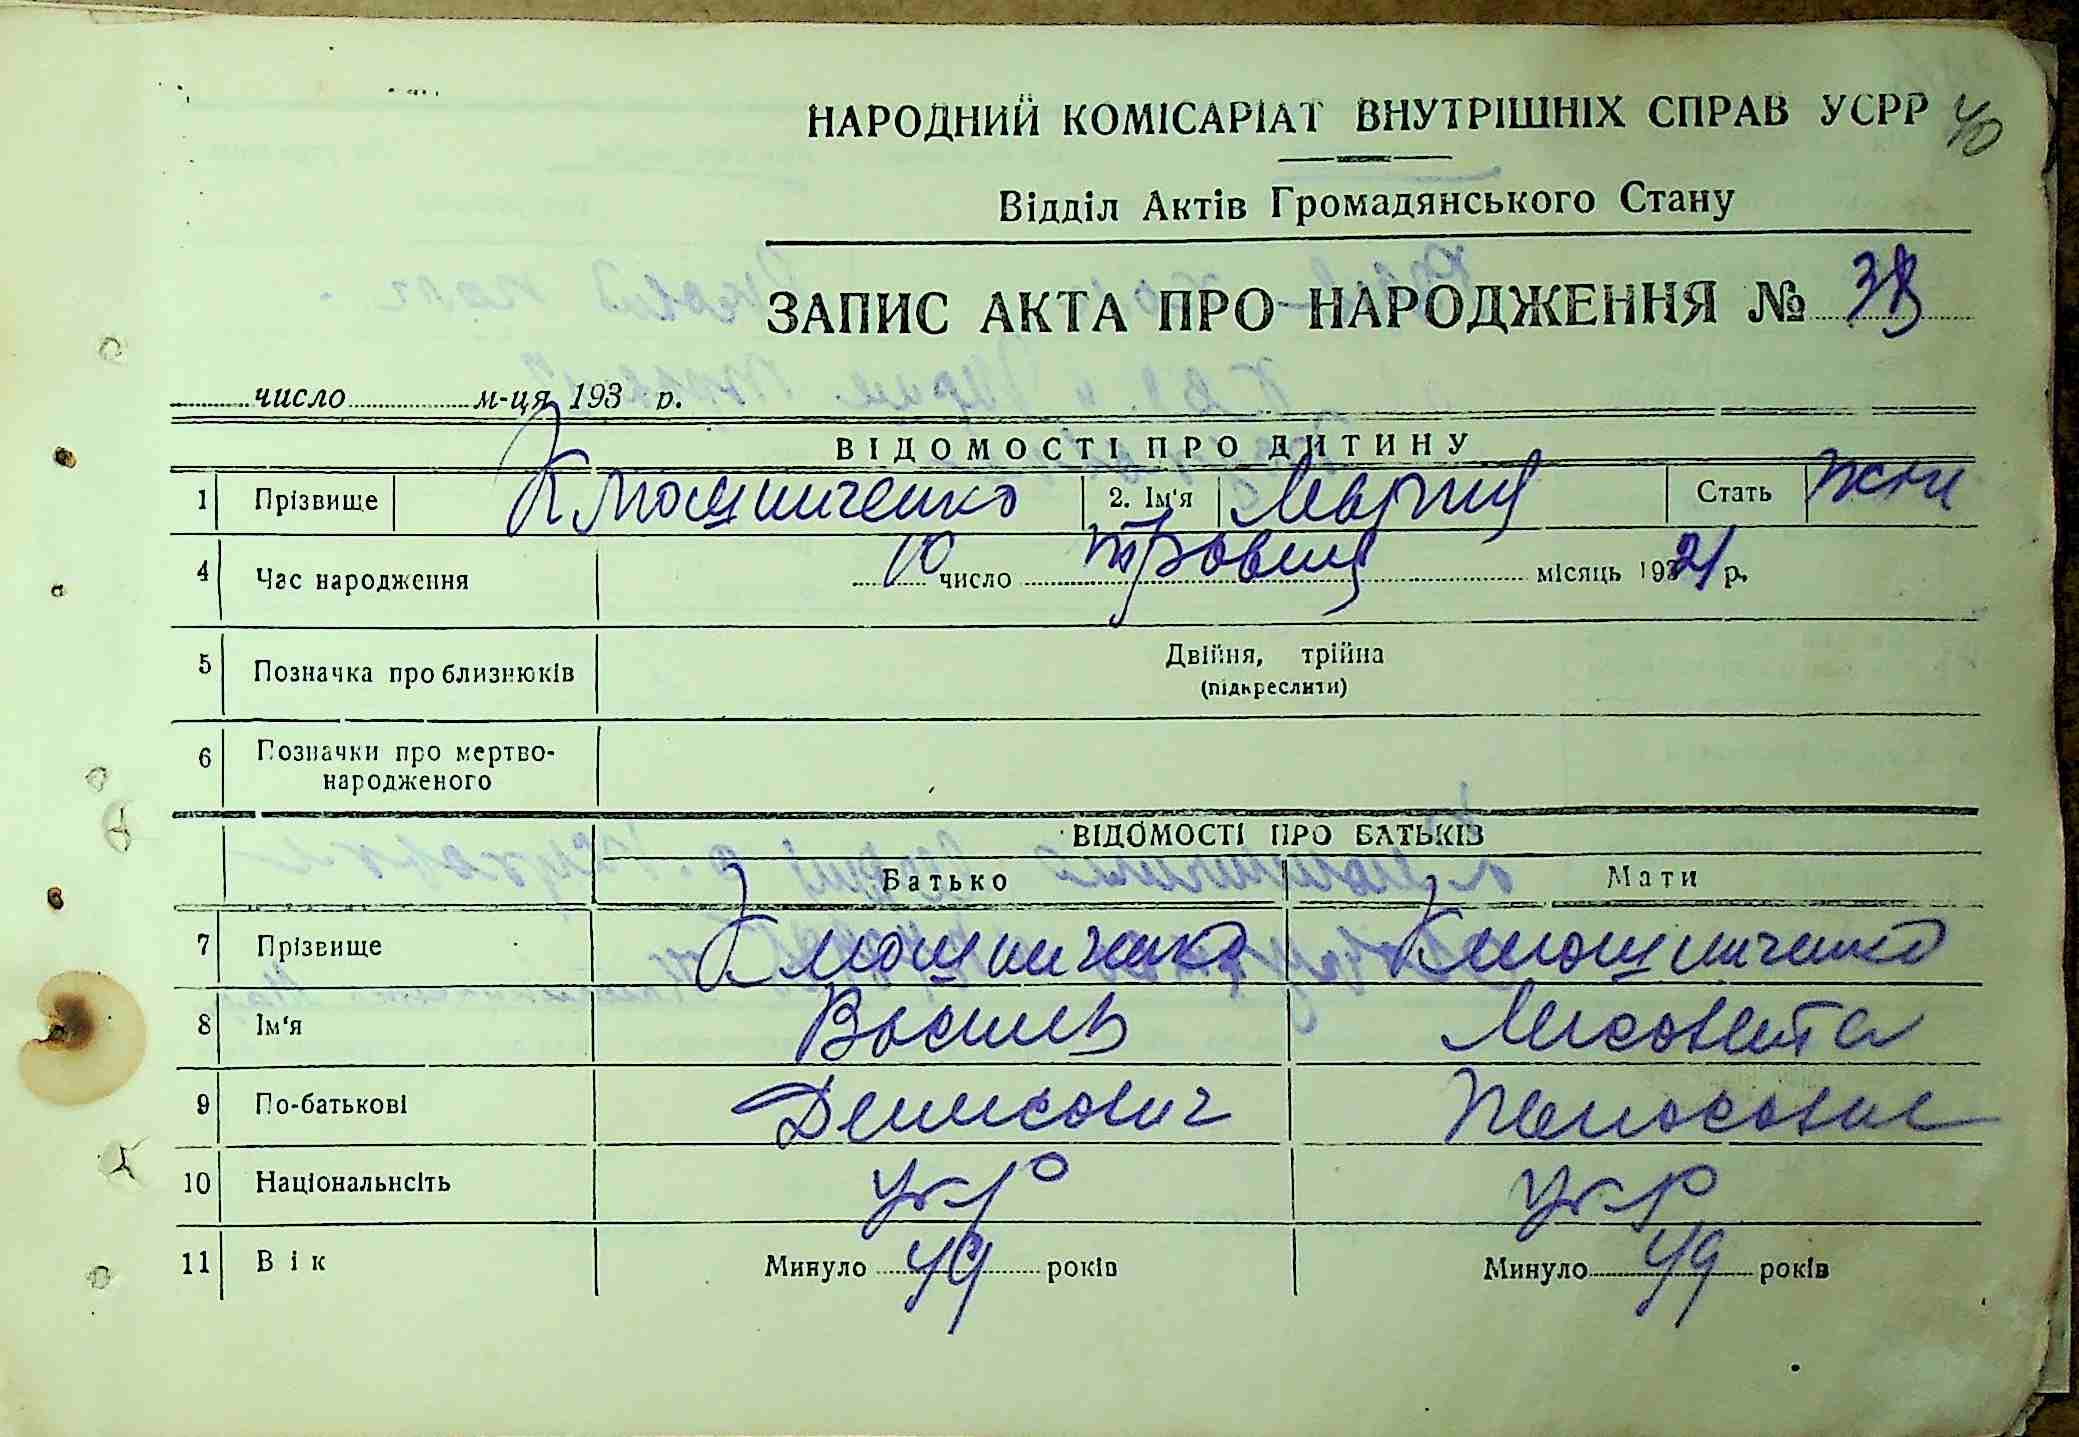 НАРОДНИЙ КОМІСАРІАТ ВНУТРІШНІХ СПРАВ УСРР 40
Відділ Актів Громадянського Стану
ЗАПИС АКТА ПРО НАРОДЖЕННЯ № 38
число м-ця 193 р.
ВІДОМОСТІ ПРО ДИТИНУ
1 Прізвище Клюшниченко 2. Ім'я Мария Стать жін
4 Час народження 10 число травня місяць 1921 р.
5 Позначка про близнюків Двійня, трійна
(підкреслити)
6 Позначки про мертво-
народженого
ВІДОМОСТІ ПРО БАТЬКІВ
Батько Мати
7 Прізвище Клюшниченко Клюшниченко
8 Ім'я Василь Лисовета
9 По-батькові Денисович
10 Національнсіть укр укр
11 Вік Минуло 49 років Минуло 49 років